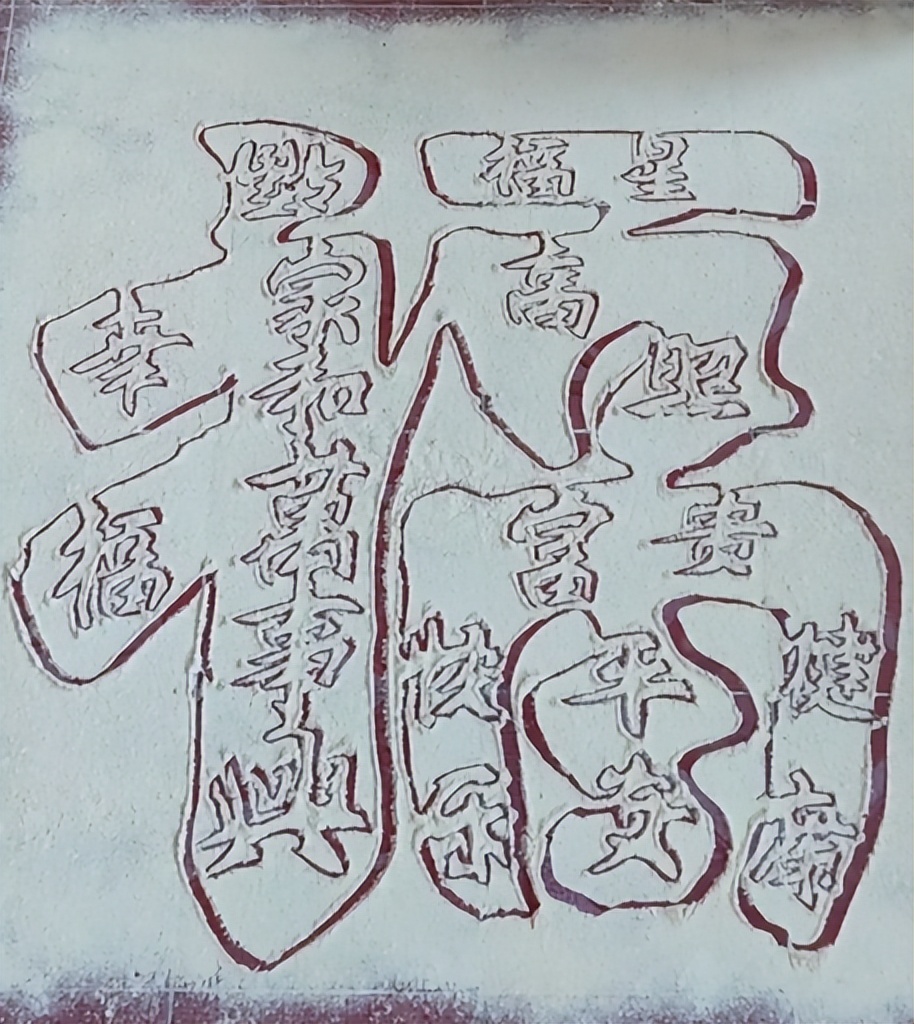 福
福星高照
家和萬事興
幸福
富貴
平安
快乐
健康